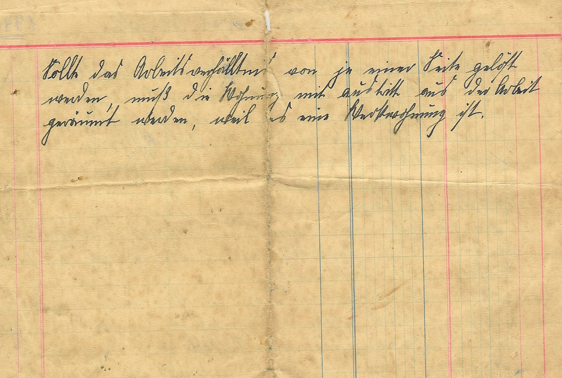 Sollte das Arbeitsverhältnis von je einer Seite gelöst
werden, muß die Wohnung mit austritt aus der Arbeit
geräumt werden, weil es eine Werkswohnung ist.